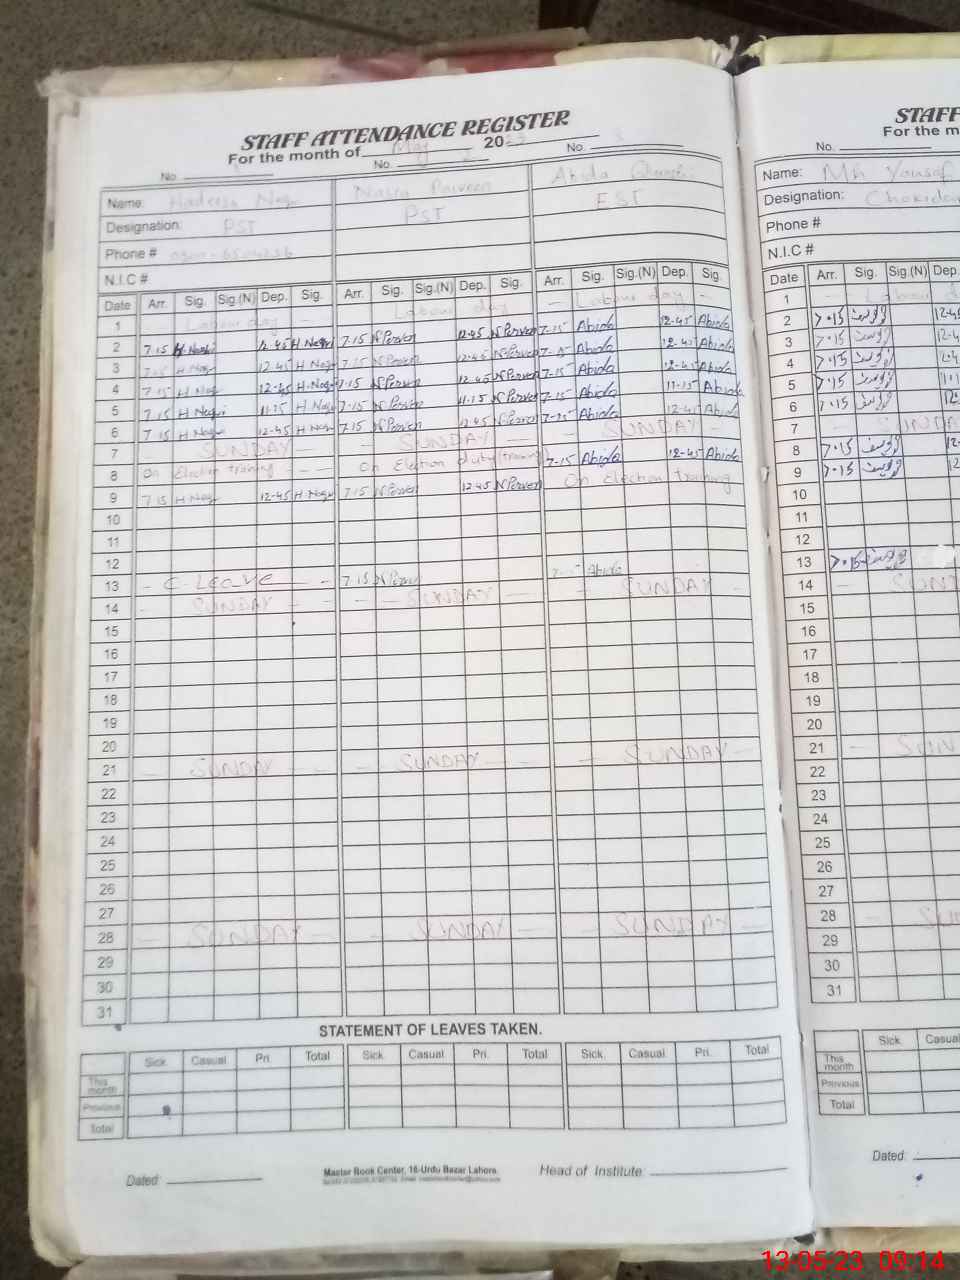 STAFF ATTENDANCE REGISTER
For the month of May 2023
No. No. 2 No. 3
Name: Nasra Parveen Abida
Designation: PST PST EST
Phone #
N.I.C #
Date Arr. Sig. Sig.(N) Dep. Sig. Arr. Sig. Sig.(N) Dep. Sig. Arr. Sig. Sig.(N) Dep. Sig.
1 Labour day - Labour day - Labour day -
2 7-15 H Naqvi 12-45 H Naqvi 7-15 N Parveen 12-45 N Parveen 7-15 Abida 12-45 Abida
3 7-15 H Naqvi 12-45 H Naqvi 7-15 N Parveen 12-45 N Parveen 7-15 Abida 12-45 Abida
4 7-15 H Naqvi 12-45 H Naqvi 7-15 N Parveen 12-45 N Parveen 7-15 Abida 12-45 Abida
5 7-15 H Naqvi 11-15 H Naqvi 7-15 N Parveen 11-15 N Parveen 7-15 Abida 11-15 Abida
6 7-15 H Naqvi 12-45 H Naqvi 7-15 N Parveen 12-45 N Parveen 7-15 Abida 12-45 Abida
7 - SUNDAY - - SUNDAY - - SUNDAY -
8 On Election training - - - On Election duty/training 7-15 Abida 12-45 Abida
9 7-15 H Naqvi 12-45 H Naqvi 7-15 N Parveen 12-45 N Parveen On Election training
10
11
12
13 - C-Leave - - 7-15 N Parveen 7-15 Abida
14 - SUNDAY - - - SUNDAY - - SUNDAY -
15
16
17
18
19
20
21 - SUNDAY - - - SUNDAY - - - SUNDAY -
22
23
24
25
26
27
28 - SUNDAY - - SUNDAY - - SUNDAY -
29
30
31
STATEMENT OF LEAVES TAKEN.
Sick Casual Pri. Total Sick. Casual Pri. Total Sick. Casual Pri. Total
This month
Previous
Total
Dated: Master Book Center, 16-Urdu Bazar Lahore. Head of Institute:
STAFF
For the m
No.
Name: Mh Yousaf
Designation: Chokidar
Phone #
N.I.C #
Date Arr. Sig. Sig.(N) Dep.
1 - Labour d
2 7-15 یوسف 12-4
3 7-15 یوسف 12-4
4 7-15 یوسف 12-4
5 7-15 یوسف 11-1
6 7-15 یوسف 12
7 - SUNDA
8 7-15 یوسف 12-4
9 7-15 یوسف 12
10
11
12
13 7-15 یوسف
14 SUND
15
16
17
18
19
20
21 - SUN
22
23
24
25
26
27
28 - SU
29
30
31
Sick Casual
This month
Privious
Total
Dated:
13-05-23 09:14